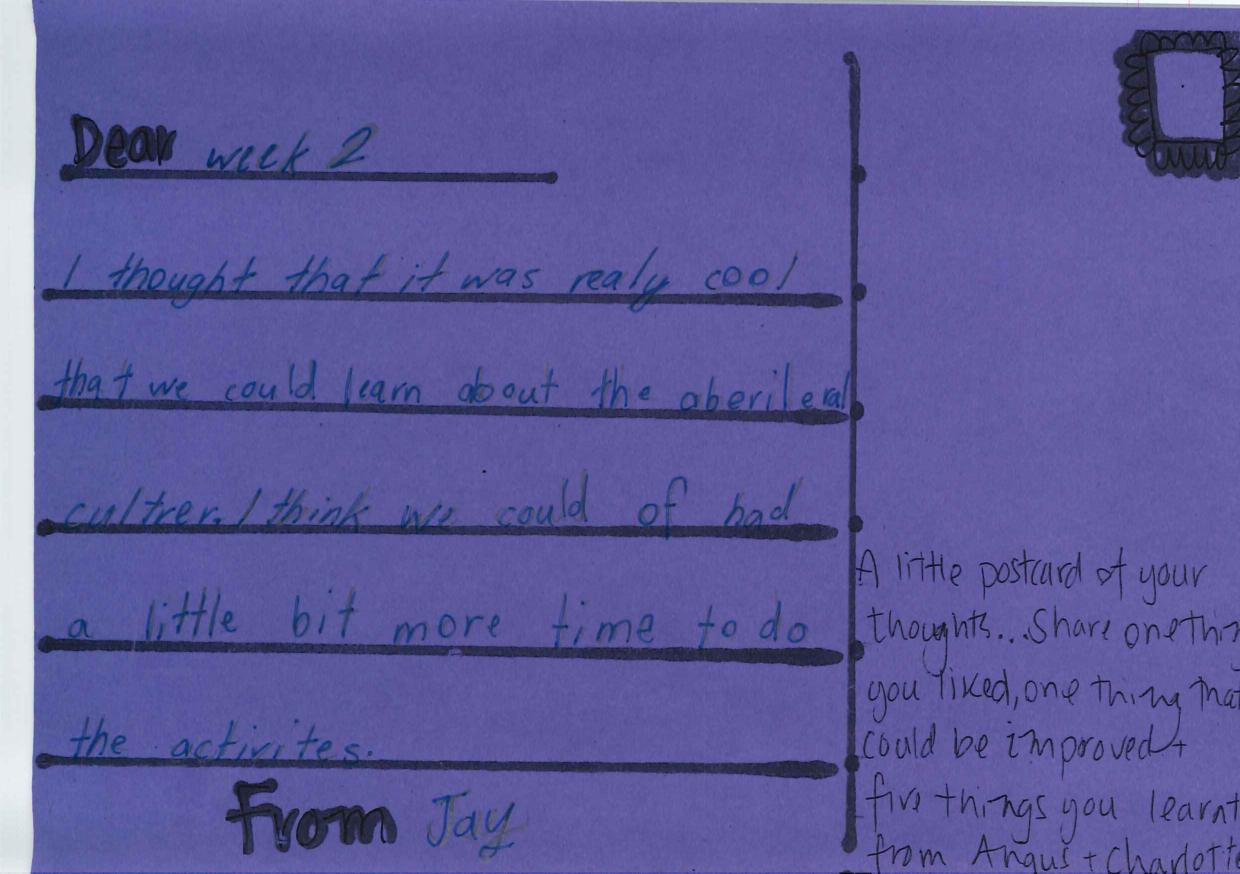 Dear week 2
I thought that it was realy cool
that we could learn about the aberileral
cultrer. I think we could of had
a little bit more time to do
the activites.
From Jay
A little postcard of your
thoughts... Share one thin
you liked, one thing that
could be improved +
five things you learnt
from Angus + Charlotte